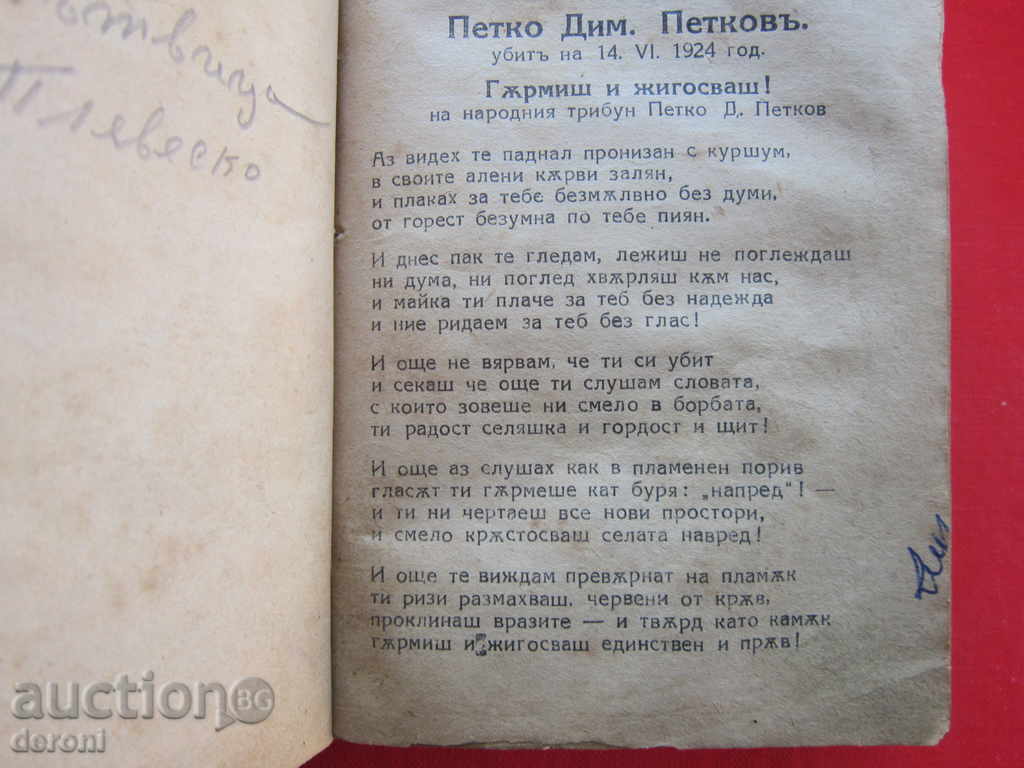 Петко Дим. Петковъ.
убитъ на 14. VI. 1924 год.
Гѫрмиш и жигосваш!
на народния трибун Петко Д. Петков
Аз видех те паднал пронизан с куршум,
в своите алени кѫрви залян,
и плаках за тебе безмѫлвно без думи,
от горест безумна по тебе пиян.
И днес пак те гледам, лежиш не поглеждаш
ни дума, ни поглед хвѫрляш кѫм нас,
и майка ти плаче за теб без надежда
и ние ридаем за теб без глас!
И още не вярвам, че ти си убит
и секаш че още ти слушам словата,
с които зовеше ни смело в борбата,
ти радост селяшка и гордост и щит!
И още аз слушах как в пламенен порив
гласѫт ти гѫрмеше кат буря: „напред“! —
и ти ни чертаеш все нови простори,
и смело крѫстосваш селата навред!
И още те виждам превѫрнат на пламѫк
ти ризи размахваш, червени от крѫв,
проклинаш вразите — и твѫрд като камѫк
гѫрмиш и жигосваш единствен и прѫв!
auctionBG
deroni